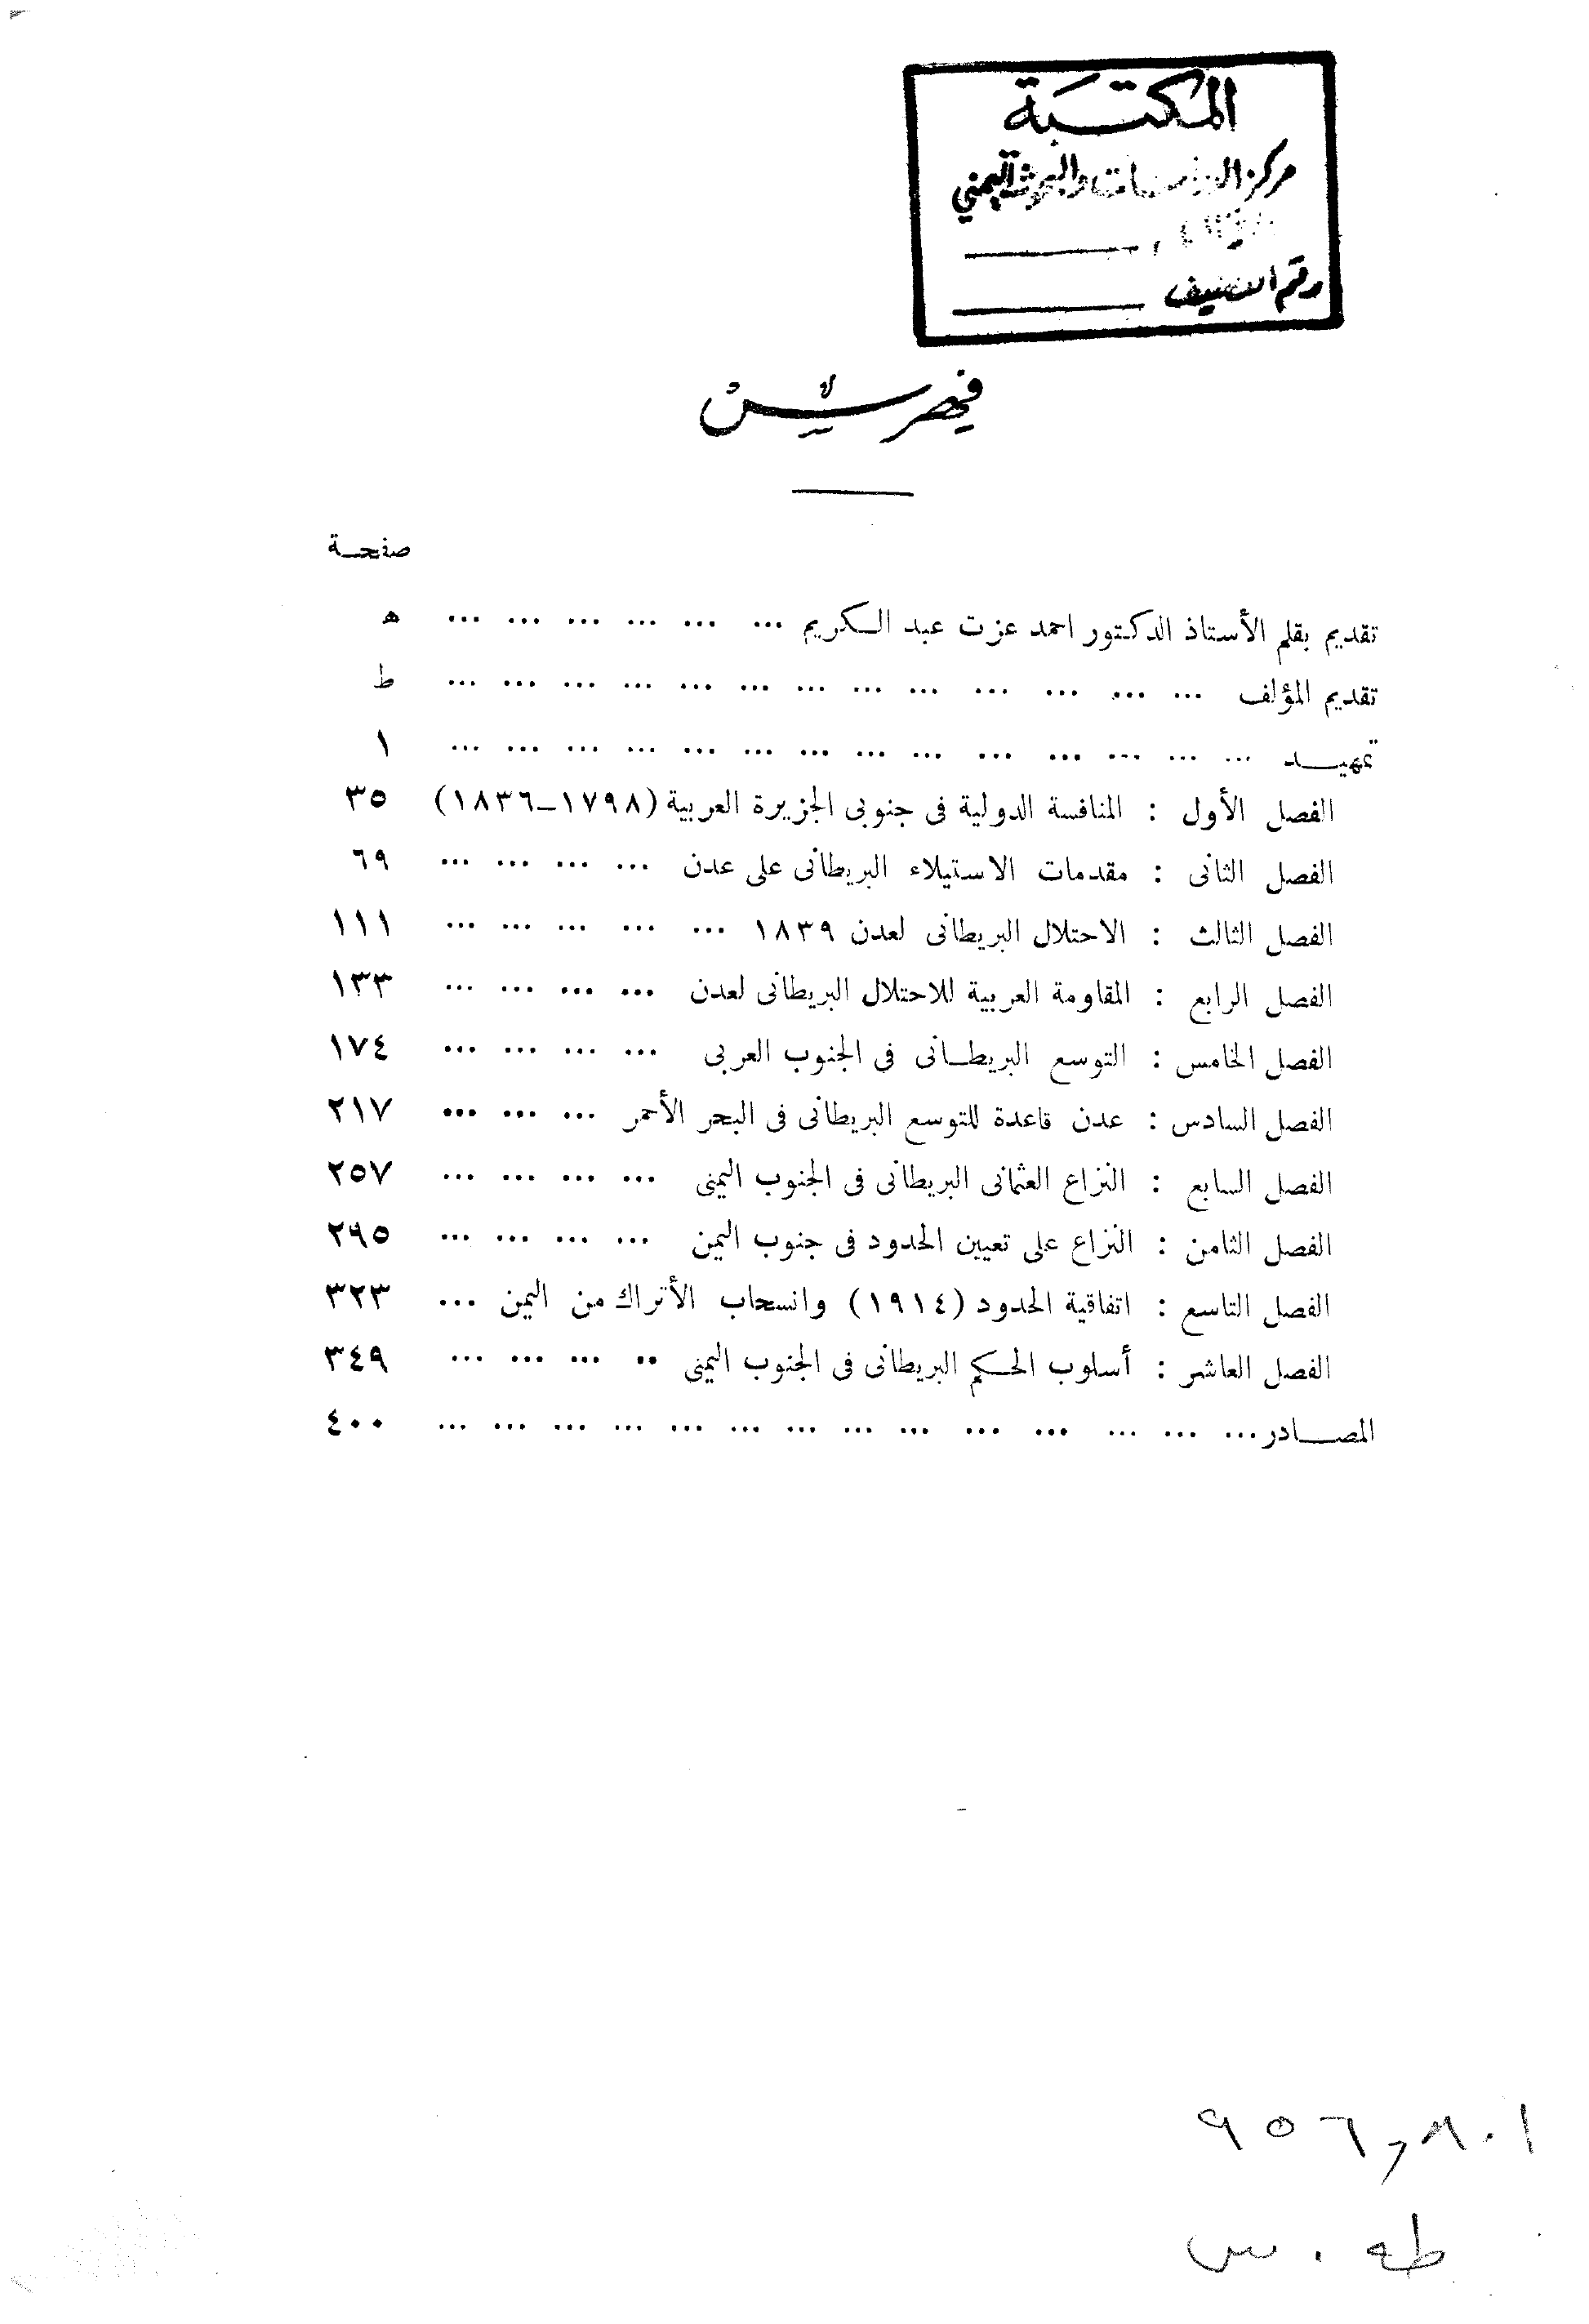 المكتبة
مركز الدراسات والبحوث اليمني
رقم التصنيف
فهرس
صفحة
تقديم بقلم الأستاذ الدكتور احمد عزت عبد الكريم ... ... ... ... ... ... ... ه
تقديم المؤلف ... ... ... ... ... ... ... ... ... ... ... ... ... ط
تمهيد ... ... ... ... ... ... ... ... ... ... ... ... ... ... ١
الفصل الأول : المنافسة الدولية فى جنوبى الجزيرة العربية (١٧٩٨–١٨٣٦) ٣٥
الفصل الثانى : مقدمات الاستيلاء البريطانى على عدن ... ... ... ... ٦٩
الفصل الثالث : الاحتلال البريطانى لعدن ١٨٣٩ ... ... ... ... ... ١١١
الفصل الرابع : المقاومة العربية للاحتلال البريطانى لعدن ... ... ... ... ١٣٣
الفصل الخامس : التوسع البريطانى فى الجنوب العربى ... ... ... ... ١٧٤
الفصل السادس : عدن قاعدة للتوسع البريطانى فى البحر الأحمر ... ... ... ٢١٧
الفصل السابع : النزاع العثمانى البريطانى فى الجنوب اليمنى ... ... ... ... ٢٥٧
الفصل الثامن : النزاع على تعيين الحدود فى جنوب اليمن ... ... ... ... ٢٩٥
الفصل التاسع : اتفاقية الحدود (١٩١٤) وانسحاب الأتراك من اليمن ... ٣٢٣
الفصل العاشر : أسلوب الحكم البريطانى فى الجنوب اليمنى .. ... ... ... ٣٤٩
المصادر ... ... ... ... ... ... ... ... ... ... ... ... ... ... ٤٠٠
٩٥٦,٨٠١
طه . س